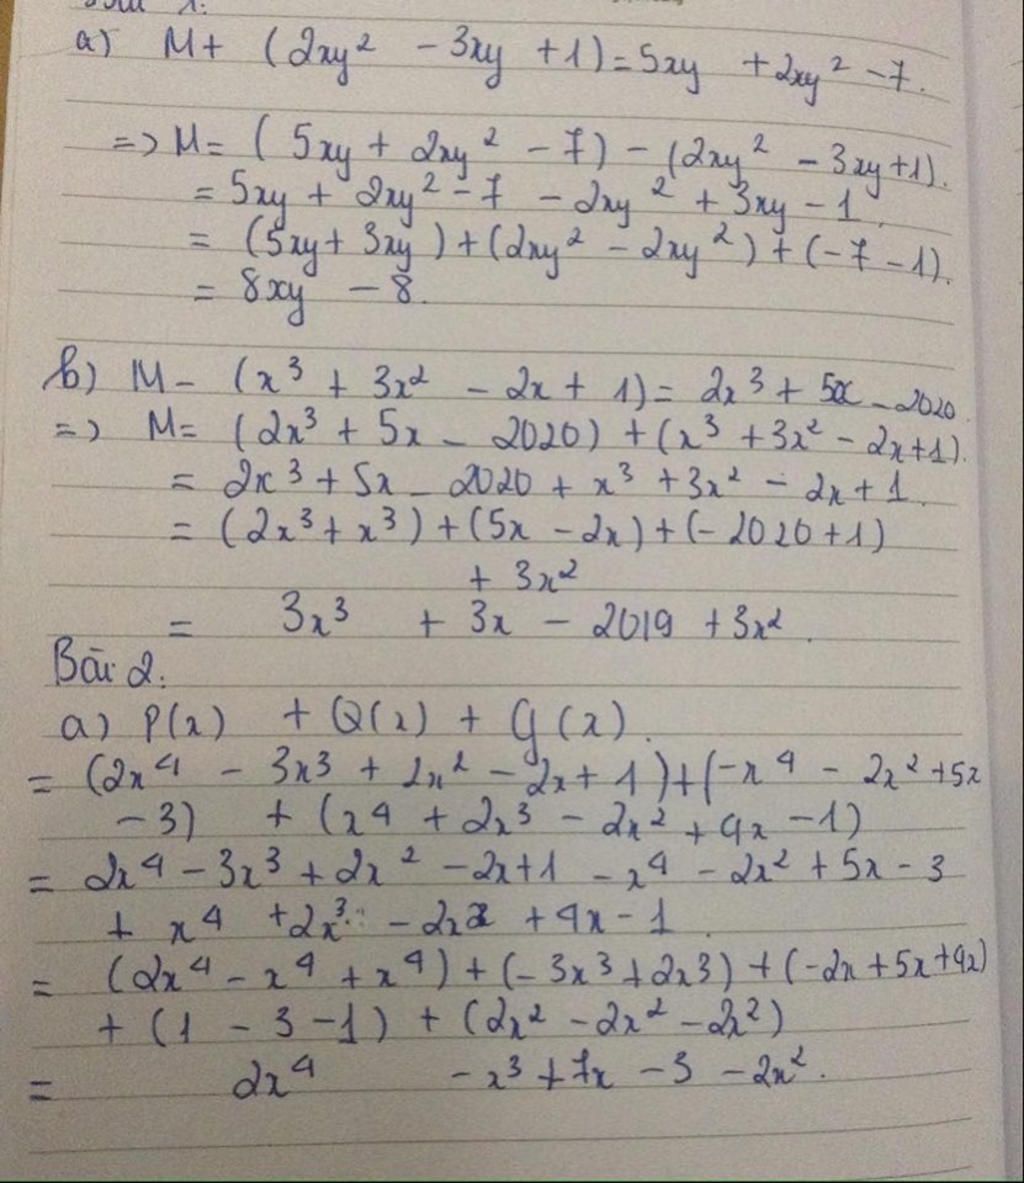 Bài 1.
a) M + (2xy² - 3xy + 1) = 5xy + 2xy² - 7.
=> M = (5xy + 2xy² - 7) - (2xy² - 3xy + 1).
= 5xy + 2xy² - 7 - 2xy² + 3xy - 1.
= (5xy + 3xy) + (2xy² - 2xy²) + (-7 - 1).
= 8xy - 8.
b) M - (x³ + 3x² - 2x + 1) = 2x³ + 5x - 2020.
=> M = (2x³ + 5x - 2020) + (x³ + 3x² - 2x + 1).
= 2x³ + 5x - 2020 + x³ + 3x² - 2x + 1.
= (2x³ + x³) + (5x - 2x) + (-2020 + 1)
+ 3x²
= 3x³ + 3x - 2019 + 3x².
Bài 2.
a) P(x) + Q(x) + G(x).
= (2x⁴ - 3x³ + 2x² - 2x + 1) + (-x⁴ - 2x² + 5x
- 3) + (x⁴ + 2x³ - 2x² + 4x - 1)
= 2x⁴ - 3x³ + 2x² - 2x + 1 - x⁴ - 2x² + 5x - 3
+ x⁴ + 2x³ - 2x2 + 4x - 1.
= (2x⁴ - x⁴ + x⁴) + (-3x³ + 2x3) + (-2x + 5x + 4x)
+ (1 - 3 - 1) + (2x² - 2x² - 2x²)
= 2x⁴ - x³ + 7x - 3 - 2x².